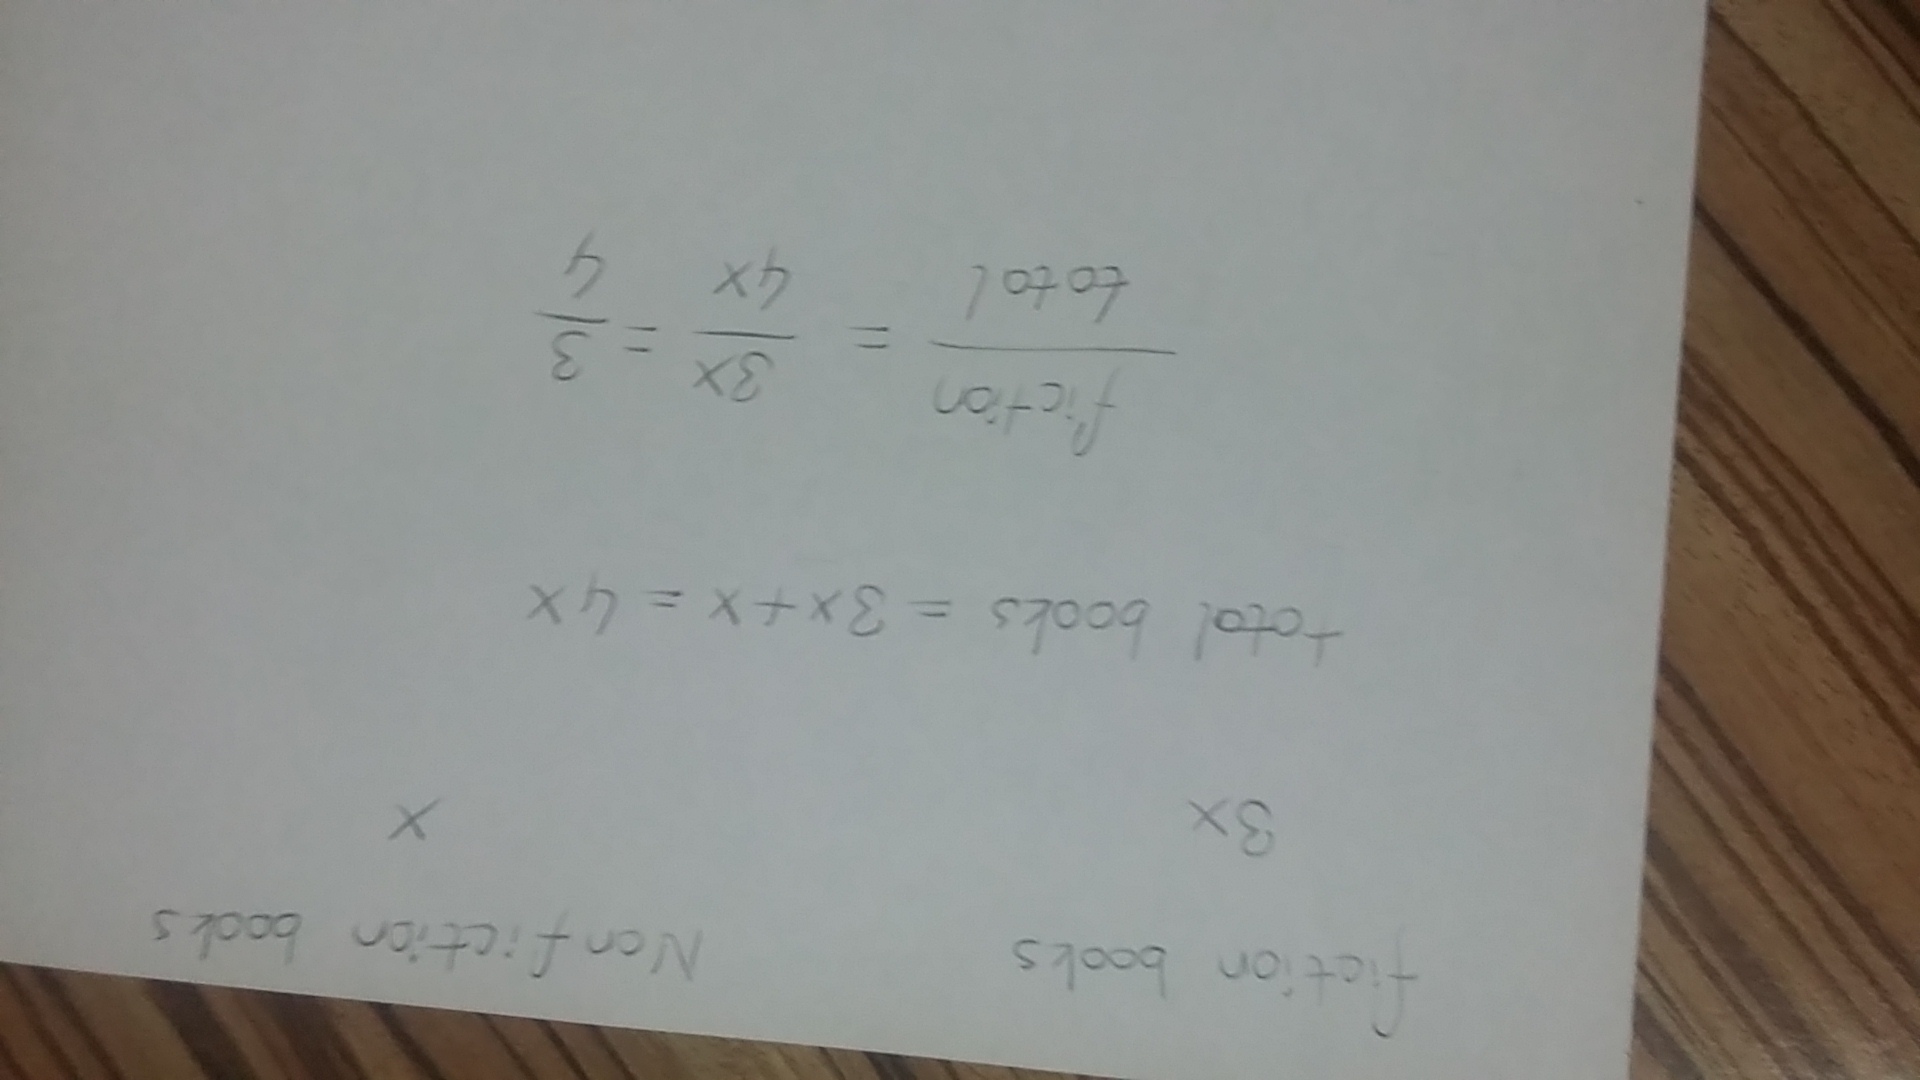 fiction books Nonfiction books
3x x
total books = 3x + x = 4x
fiction/total = 3x/4x = 3/4